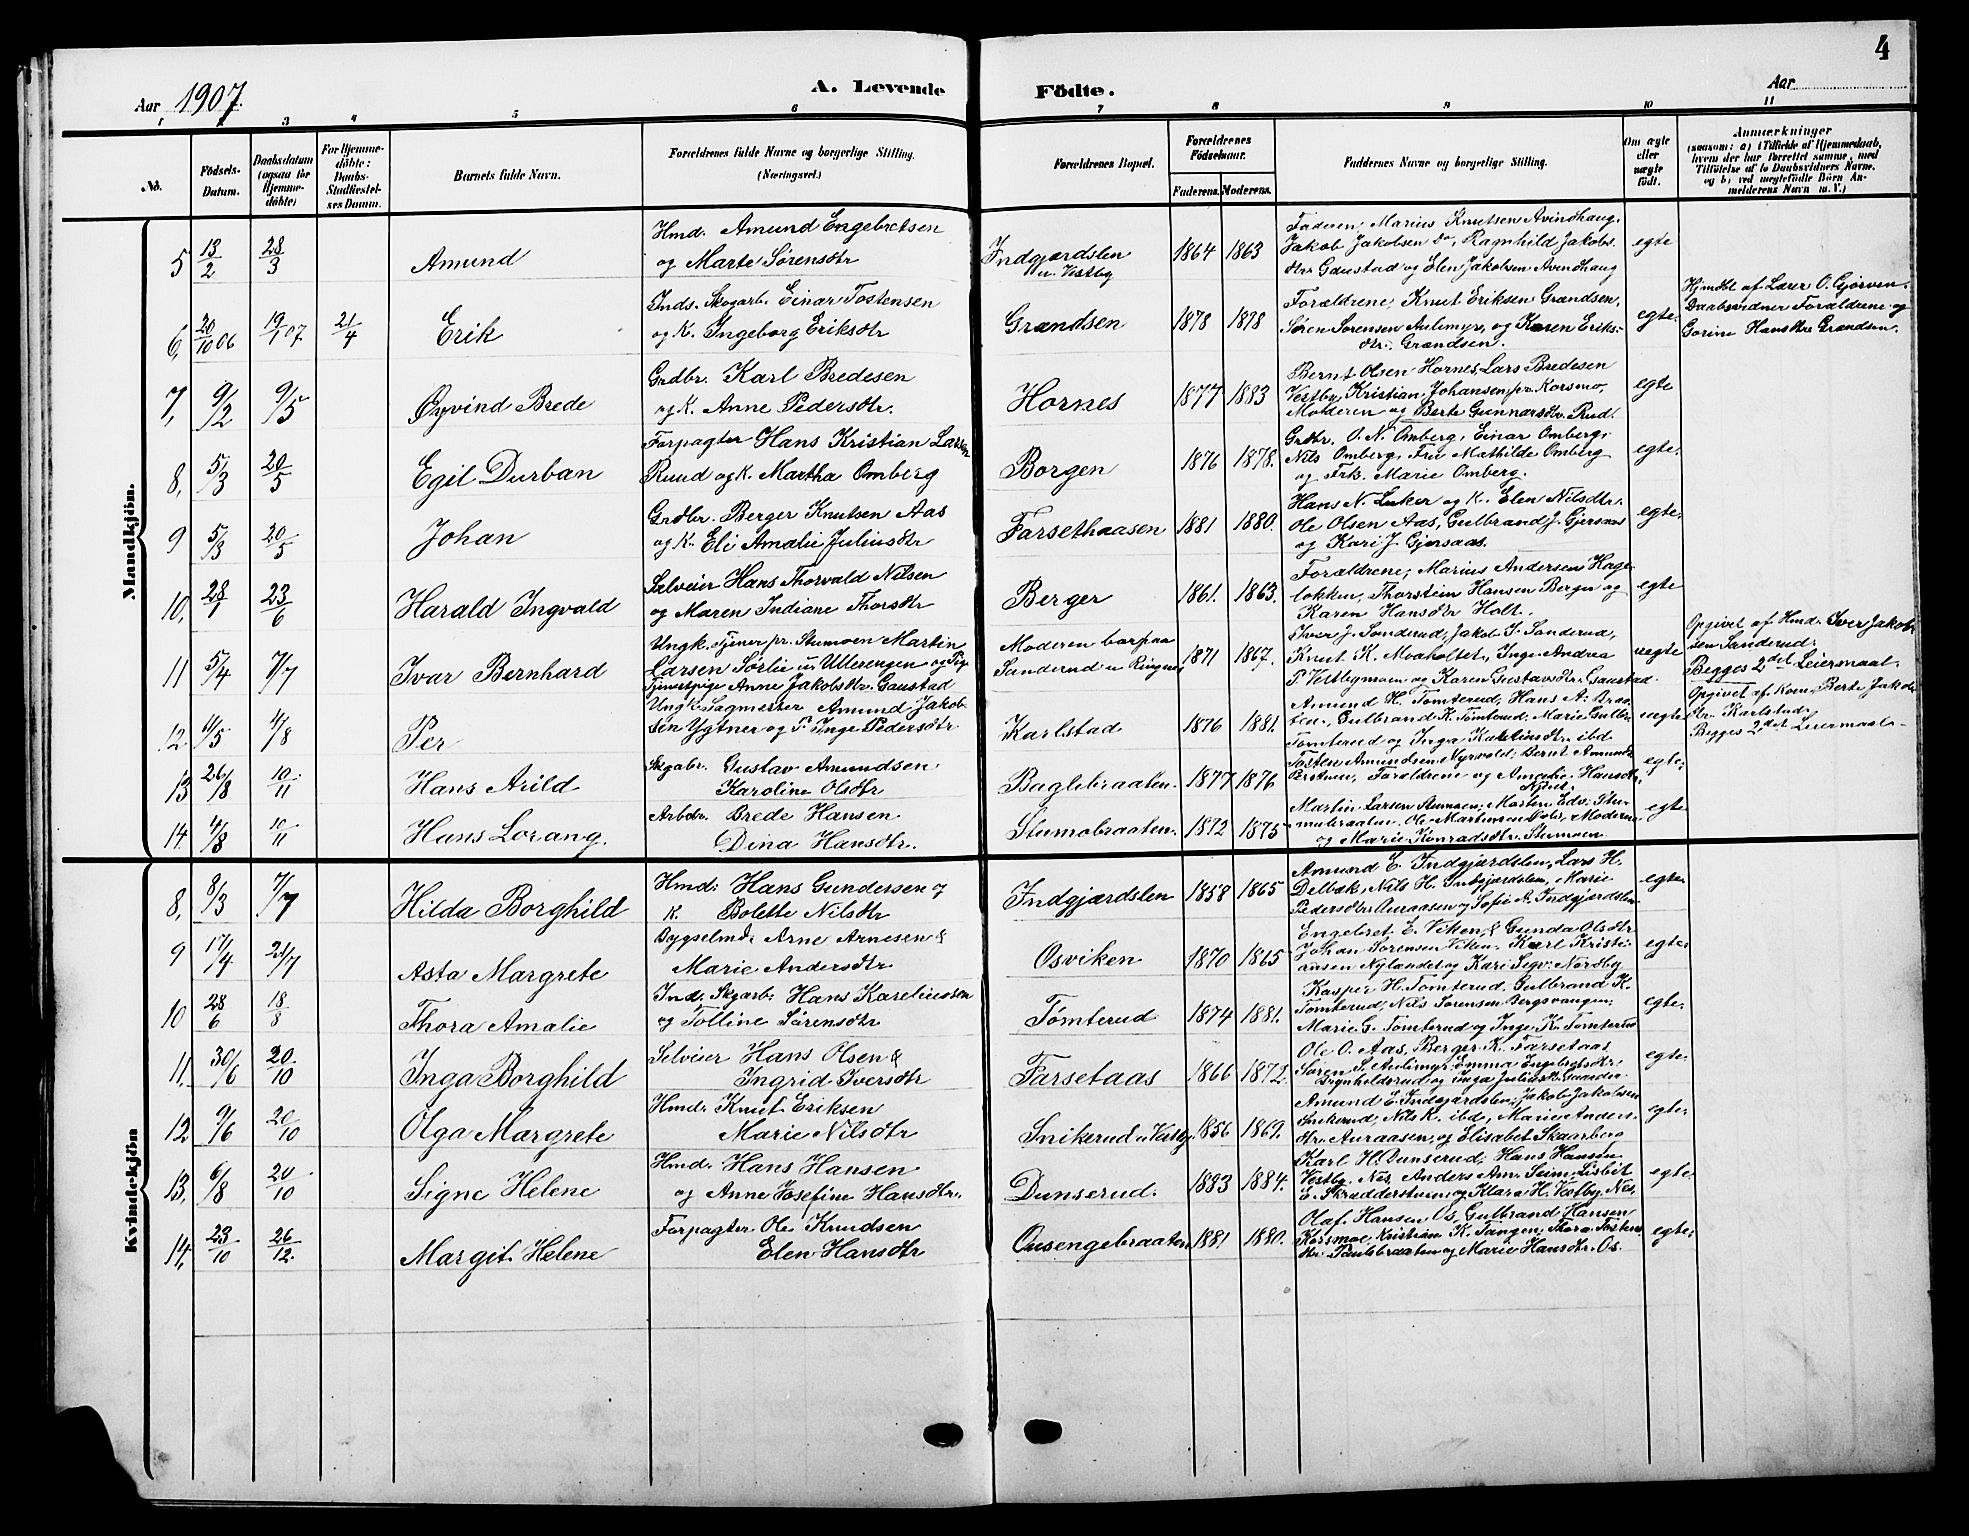 4
Aar 1907.
A. Levende
Födte.
Aar
1 2 3 4 5 6 7 8 9 10 11
No.
Födsels-Datum.
Daabsdatum (ogsaa for Hjemmedöbte)
For Hjemmedöbte: Daabs-Stadfæstelses Datum.
Barnets fulde Navn.
Forældrenes fulde Navne og borgerlige Stilling.
(Næringsvei.)
Forældrenes Bopæl.
Forældrenes Födselsaar.
Faderens. Moderens.
Faddernes Navne og borgerlige Stilling.
Om ægte eller uægte födt.
Anmærkninger
(saasom: a) i Tilfælde af Hjemmedaab,
hvem der har forrettet samme, med
Tilföielse af to Daabsvidners Navne.
og b) ved uægtefödte Börn An-
melderens Navn m. V.)
Mandkjön.
5 13/2 28/3 Amund
Hmd. Amund Engebretsen
og Marte Sørensdtr
Indgjærdslen
u. Vestby
1864 1863
Faderen, Marius Knutsen Avindhaug.
Jakob Jakobsen do, Ragnhild Jakobs
dtr. Gaustad og Elen Jakobsen Avindhaug
egte
6, 20/10 06 19/1 07 21/4 Erik
Inds. Skogarb. Einar Tostensen
og K. Ingeborg Eriksdtr
Grændsen
1878 1878
Forældrene, Knut Eriksen Grændsen,
Søren Sørensen Aulimyr, og Karen Eriks-
dtr. Grændsen.
egte.
Hjmdbt af Lærer O. Gjörven.
Daabsvidner Forældrene og
Gorine Hansdtr Grændsen.
7, 9/2 9/5 Øyvind Brede
Grdbr. Karl Bredesen
og K. Anne Pedersdtr.
Hornes
1877 1883
Bernt Olsen Hornes, Lars Bredesen
Vestby, Kristian Johansen pr. Korsmo,
Moderen og Berte Gunnarsdtr. Rud.
egte
8, 5/3 20/5 Egil Durban
Forpagter Hans Kristian Larsen
Ruud og K. Martha Omberg
Borgen
1876 1878.
Grdbr. O. N. Omberg, Einar Omberg,
Nils Omberg, Fru Mathilde Omberg
og Frk. Marie Omberg.
egte.
9 5/3 20/5 Johan
Grdbr. Berger Knutsen Aas
og K. Eli Amalie Juliusdtr
Farsethaasen
1881 1880.
Hans N. Luker og K. Elen Nilsdtr.
Ole Olsen Aas, Gulbrand J. Gjersaas
og Kari J. Gjersaas.
egte.
10, 28/1 23/6 Harald Ingvald
Selveier Hans Thorvald Nilsen
og Maren Indiane Thorsdtr
Berger
1861. 1863.
Forældrene, Marius Andersen Hage-
lokken, Thorstein Hansen Berger og
Karen Hansdtr Holt.
egte
11 5/4 7/7 Ivar Bernhard
Ungk. Tjener pr. Stumoen Martin
Larsen Sørlie u/ Ullerengen og Pige
Tjenestpige Anne Jakobsdtr. Gaustad
Moderen barpaa
Sanderud u Ringnes
1871 1867.
Iver J. Sanderud, Jakob I. Sanderud,
Knut K. Moaholtet, Inge Andrea
P. Vestbymoen og Karen Gustavsdtr. Gaustad.
uegte
Opgivet af Hmd. Iver Jakob-
sen Sanderud.
Begges 2det Leiermaal.
12 11/5 4/8 Per
Ungk. Sagmester Amund Jakob-
sen Ygtner og P. Inge Pedersdtr
Karlstad
1876 1881.
Amund H. Tömterud, Hans A. Braa-
ten, Gulbrand K. Tömterud, Marie Gulbr.
Tömterud og Inga Karelinsdtr. ibd
uegte
Opgivet af Kone Berte Jakobs
dtr. Karlstad.
Begges 2det Leiermaal.
13 26/8 10/11 Hans Arild
Skgabr. Gustav Amundsen.
Karoline Olsdtr
Baglibraaten.
1877 1876
Tosten Amundsen Myrvold, Bernt Amunds.
Forældrene og Amalie Hansdtr.
egte.
14. 4/8 10/11 Hans Lorang.
Arbdr. Brede Hansen
Dina Hansdtr.
Stumobraaten.
1872 1875
Martin Larsen Stumoen, Marten Edv. Stu-
mobraaten, Ole Martinsen, Moderen
og Marie Konradsdtr. Stumoen
egte
Kvindekjön
8, 8/3 7/7 Hilda Borghild
Hmd. Hans Gundersen og
K. Bolette Nilsdtr
Indgjærdslen
1858 1865
Amund E. Indgjærdslen, Lars H.
Delbæk, Nils H. Indgjærdslen, Marie
Pedersdtr Auraasen og Sofie A. Indgjærdslen
egte
9 17/4 21/7 Asta Margrete
Bygselmd. Arne Arnesen &
Marie Andersdtr
Osviken
1870 1865
Engebret E. Viken, & Gunda Olsdtr
Johan Sørensen Viken, Karl Kristi-
ansen Nylandet og Kari Sigv. Nordby
egte.
10 28/6 18/8 Thora Amalie
Ind. Skgarb. Hans Kareliussen
og Tolline Sørensdtr
Tömterud
1874 1881.
Kasper H. Tomterud, Gulbrand K.
Tomterud, Nils Sørensen Bergsvangen;
Marie G. Tömterud og Inge K. Tomterud
egte.
11, 30/6 20/10 Inga Borghild
Selveier Hans Olsen &
Ingrid Iversdtr
Farsetaas
1866 1872.
Ole O. Aas, Berger K. Farsetaas,
Søren S. Aulimyr, Emma Engebretsdtr.
og Inga Juliusdtr
egte.
12 9/6 20/10 Olga Margrete
Hmd. Knut Eriksen
Marie Nilsdtr
Snikerud u Vestby
1856 1869.
Amund E. Indgjærdslen, Jakob Jakobsen
Snikerud, Nils K. ibd, Marie Anders
dtr. Auraasen, og Elisabet Skaarberg
egte.
13, 6/8 20/10 Signe Helene
Hmd. Hans Hansen
og Anne Josefine Hansdtr.
Dunserud.
1883 1884.
Karl H. Dunserud, Hans Hansen
Vestby, Nes, Anders Am. Seim, Lisbet
E. Skrædderstuen og Klara H. Vestby, Nes.
egte.
14, 23/10 26/12. Margit Helene
Forpagter Ole Knudsen
Elen Hansdtr
Ousengebraaten
1881 1880.
Olaf Hansen Os, Gulbrand Hansen
Korsmoe, Kristian K. Tangen, Thora Tostens
dtr. Paulsbraaten og Marie Hansdtr. Os.
egte.